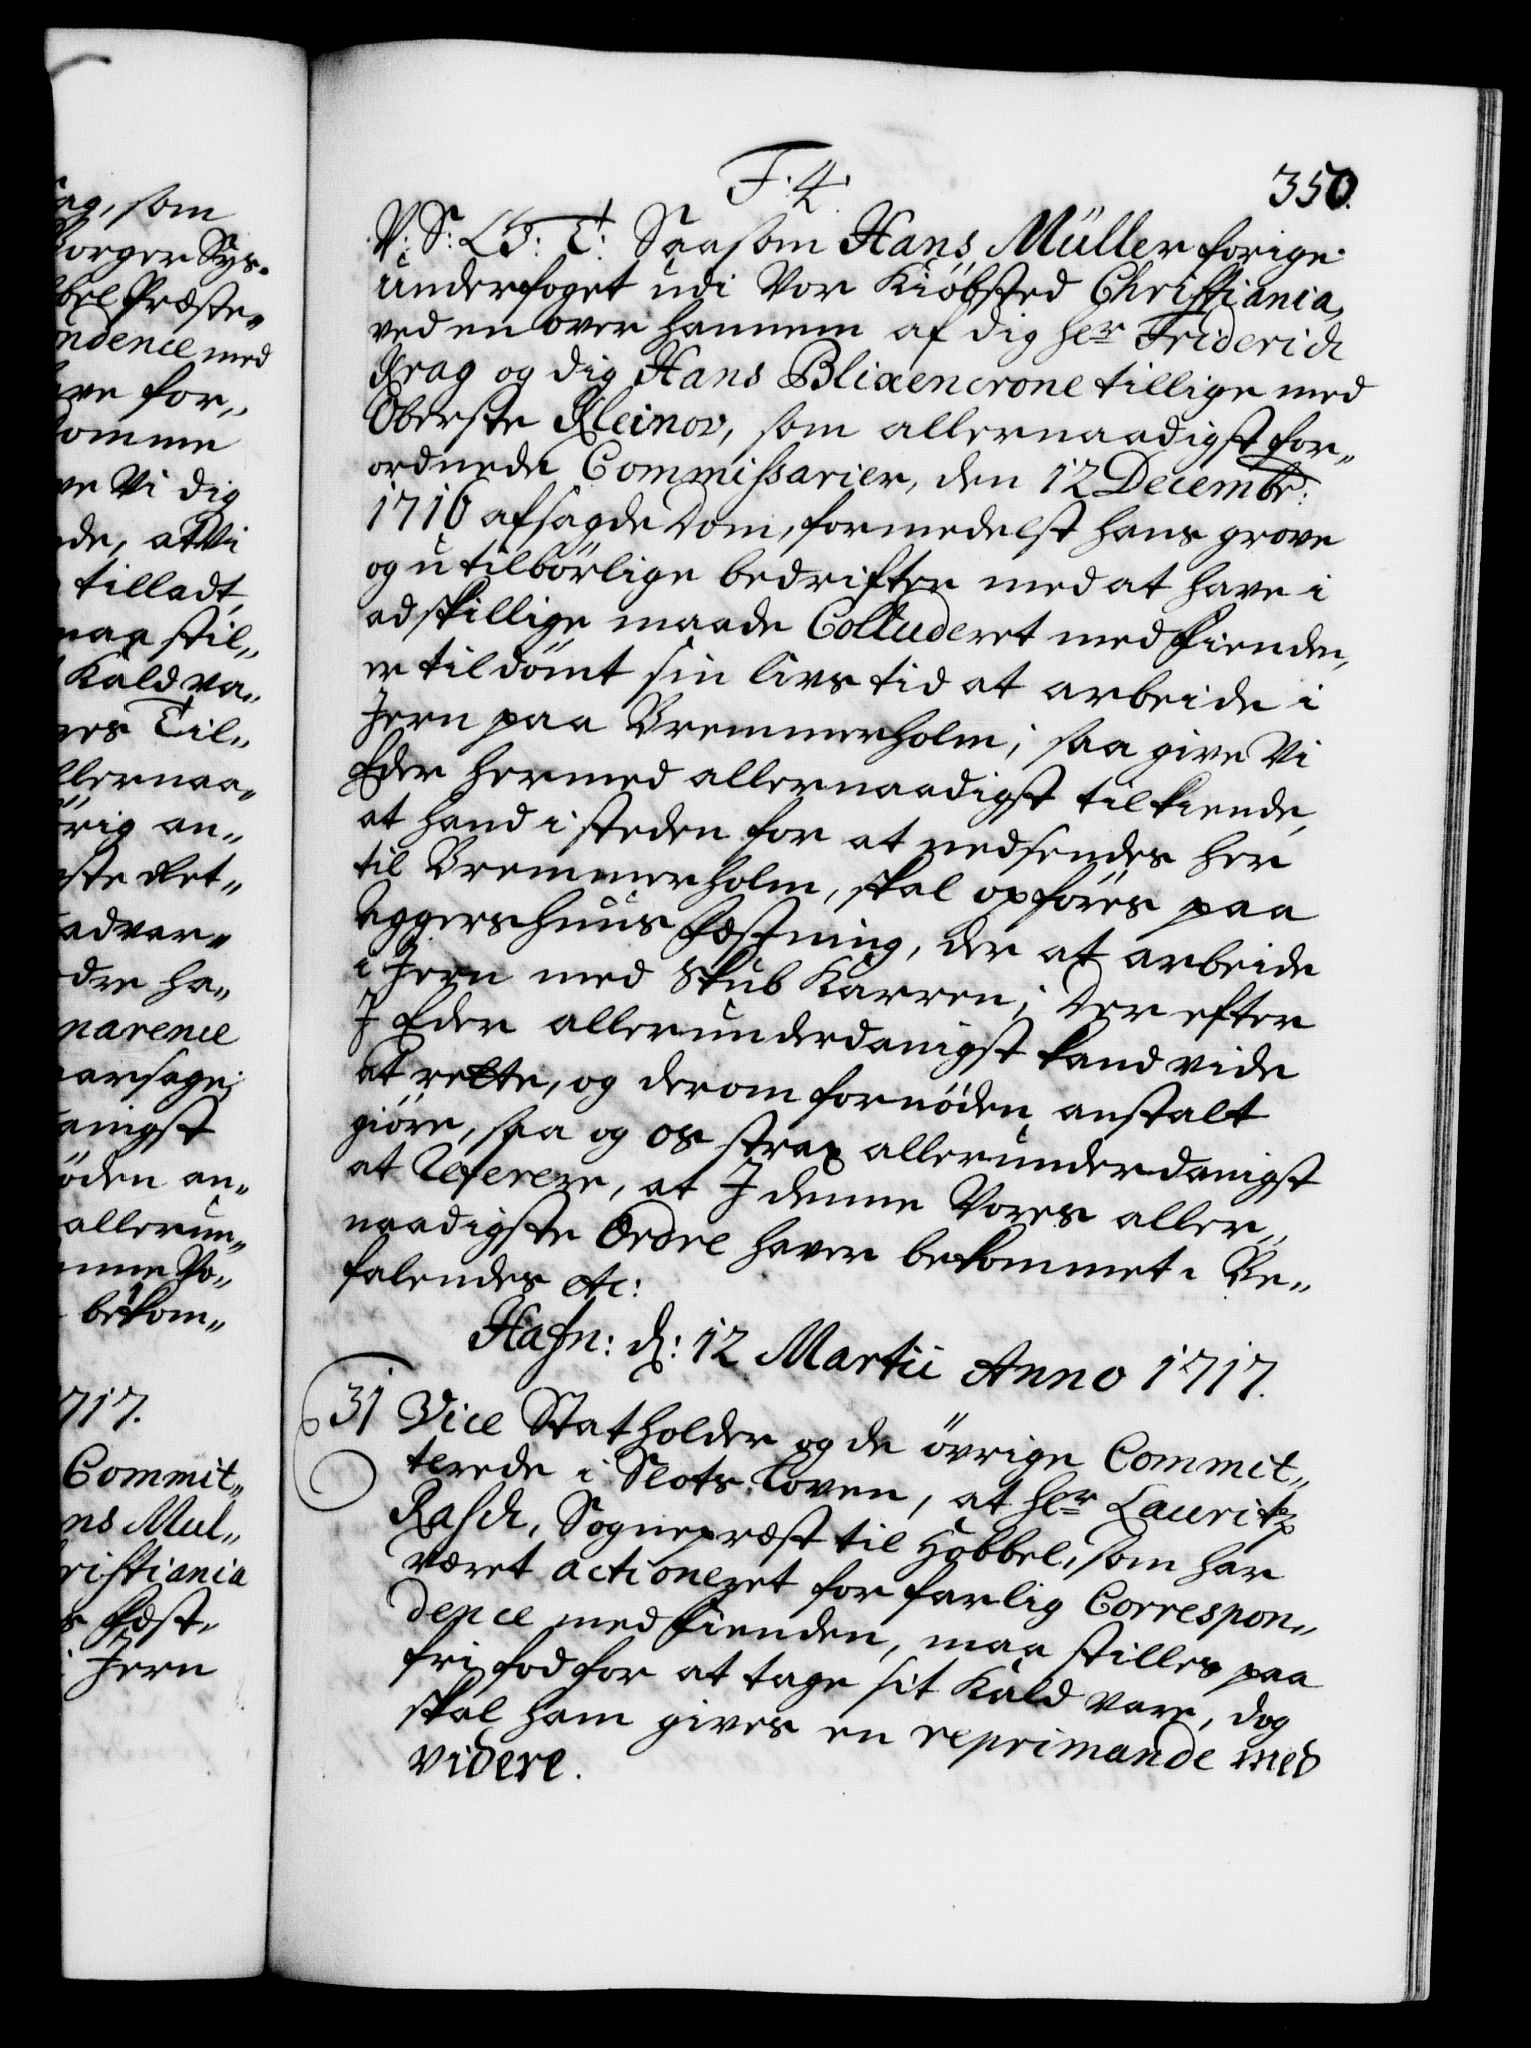 F. 4.
350.
V: S: G: T: Saasom Hans Müller forige
underfoget udi Vor Kiöbsted Christiania,
ved en over hannem af dig Hr Friderich
Krag og dig Hans Blixencrone tillige med
Oberste Kleinov, som allernaadigst for„
ordnede Commissarier, den 12 Decembr:
1716 afsagde Dom, formedelst hans grove
og utilbörlige bedrifter med at have i
adskillige maade Colluderet med Fienden,
er tildömt sin livs tid at arbeide i
Jern paa Bremmerholm; saa give Vi
Eder hermed allernaadigst tilkiende,
at hand i steden for at nedsendes her
til Bremmerholm, skal opföres paa
Aggershuus Fæstning, der at arbeide
i Jern med Skub Karren; Der efter
I Eder allerunderdanigst kand vide
at rette, og derom fornöden anstalt
giöre, saa og os strax allerunderdanigst
at Referere, at I denne Vores aller„
naadigste Ordre haver bekommet. Be„
falendes etc:
Hafn: d: 12 Martii Anno 1717.
31 Vice Statholder og de övrige Commit„
terede i Slots Loven, at Hr Lauritz
Rasch, Sognepræst til Hobbel, som har
været actioneret for farlig Correspon„
dence med Fienden, maa stilles paa
fri fod for at tage sit Kald vare, dog
skal ham gives en reprimande med
videre.
ag, som
borger Sys„
bel Præste„
ndence med
ve for„
komme
ve Vi dig
de, at Vi
tilladt,
maa stil„
Kald va„
res Til„
llernaa„
rig an„
ste Ret„
advar„
dre ha„
narence
arsage;
anigst
öden an„
allerun„
nne Vo„
bekom„
717.
Commit„
ns Mul„
ristiania
s Fæst„
i Jern